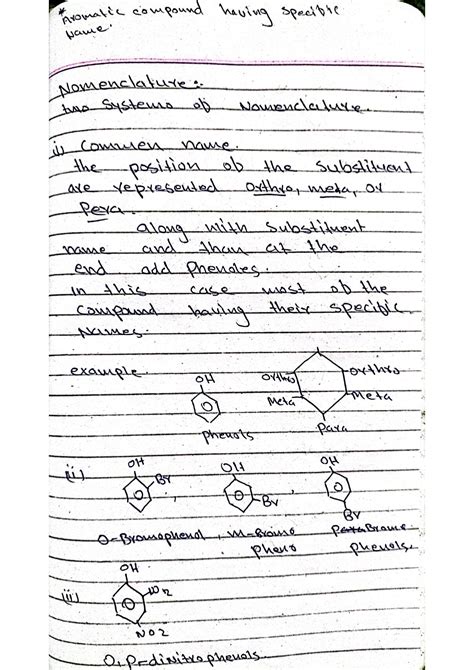 *Aromatic compound having specific
name.
Nomenclature:-
two systems of Nomenclature.
i) Commen name.
the position of the substituent
are represented orthro, meta, or
Pera.
along with substituent
name and than at the
end add Phenoles.
in this case most of the
compound having their specific
Names.
example.
OH
phenols
orthro
orthro
Meta
Meta
Para
(ii)
OH
Br
,
OH
Br
,
OH
Br
O-Bromophenol, M-Bromo pheno
ParaBromo phenols.
iii)
OH
NO2
NO2
O,P-dinitrophenols